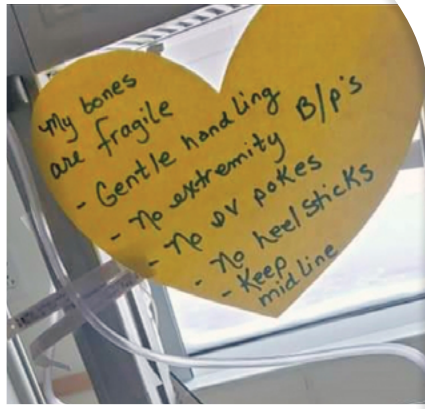 My bones
are fragile
- Gentle handling
- No extremity B/p's
- No IV pokes
- No heel sticks
- Keep
midline